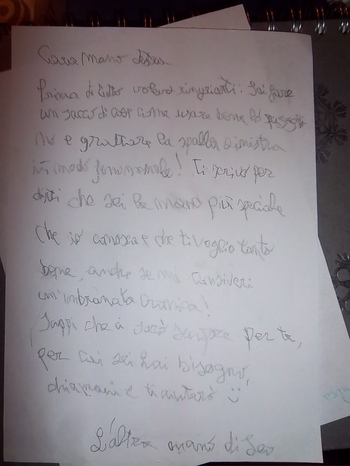 Cara Mano destra
Prima di tutto volevo ringraziarti: sai fare
un sacco di cose come usare bene lo spazzolino
e grattare la spalla sinistra
in modo fenomenale! Ti scrivo per
dirti che sei la mano più speciale
che io conosca e che ti voglio tanto
bene, anche se mi consideri
un'imbranata cronica!
Sappi che ci sarò sempre per te,
per cui se hai bisogno,
chiamami e ti aiuterò :)
L'altra mano di